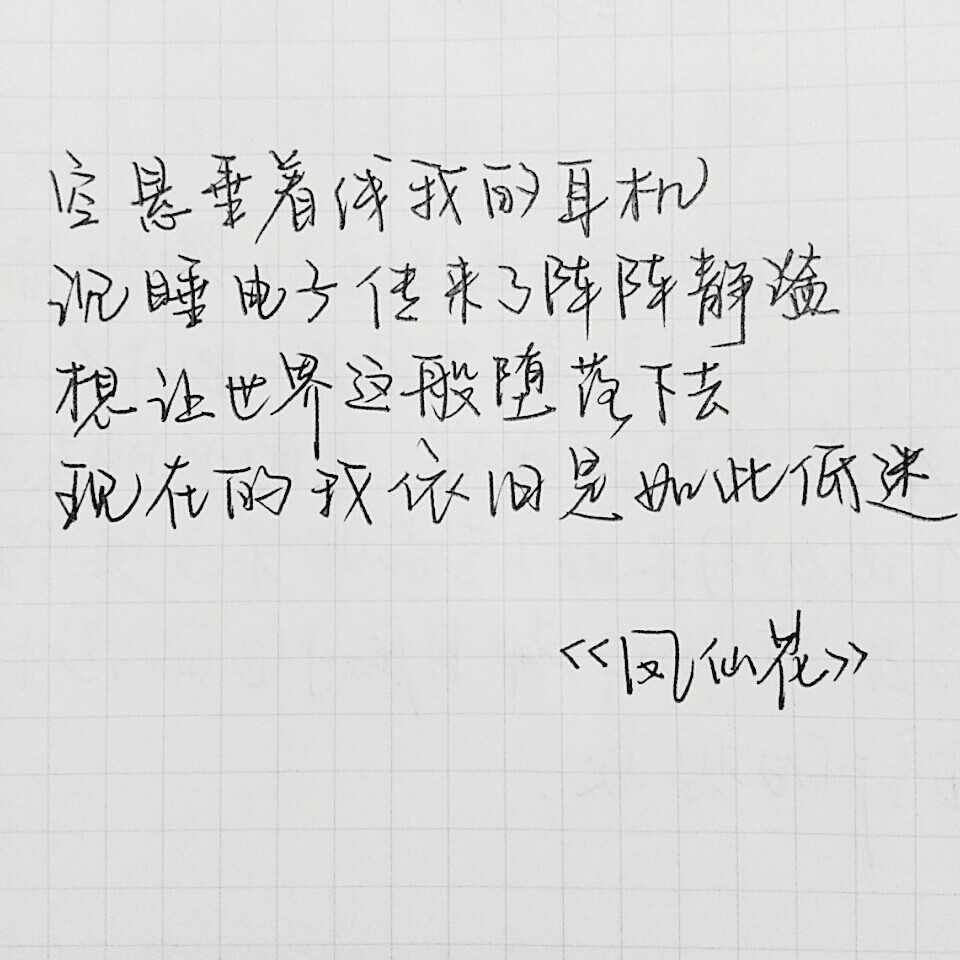 空悬垂着的我的耳机
沉睡电子传来了阵阵静谧
想让世界这般堕落下去
现在的我依旧是如此低迷
<<凤仙花>>